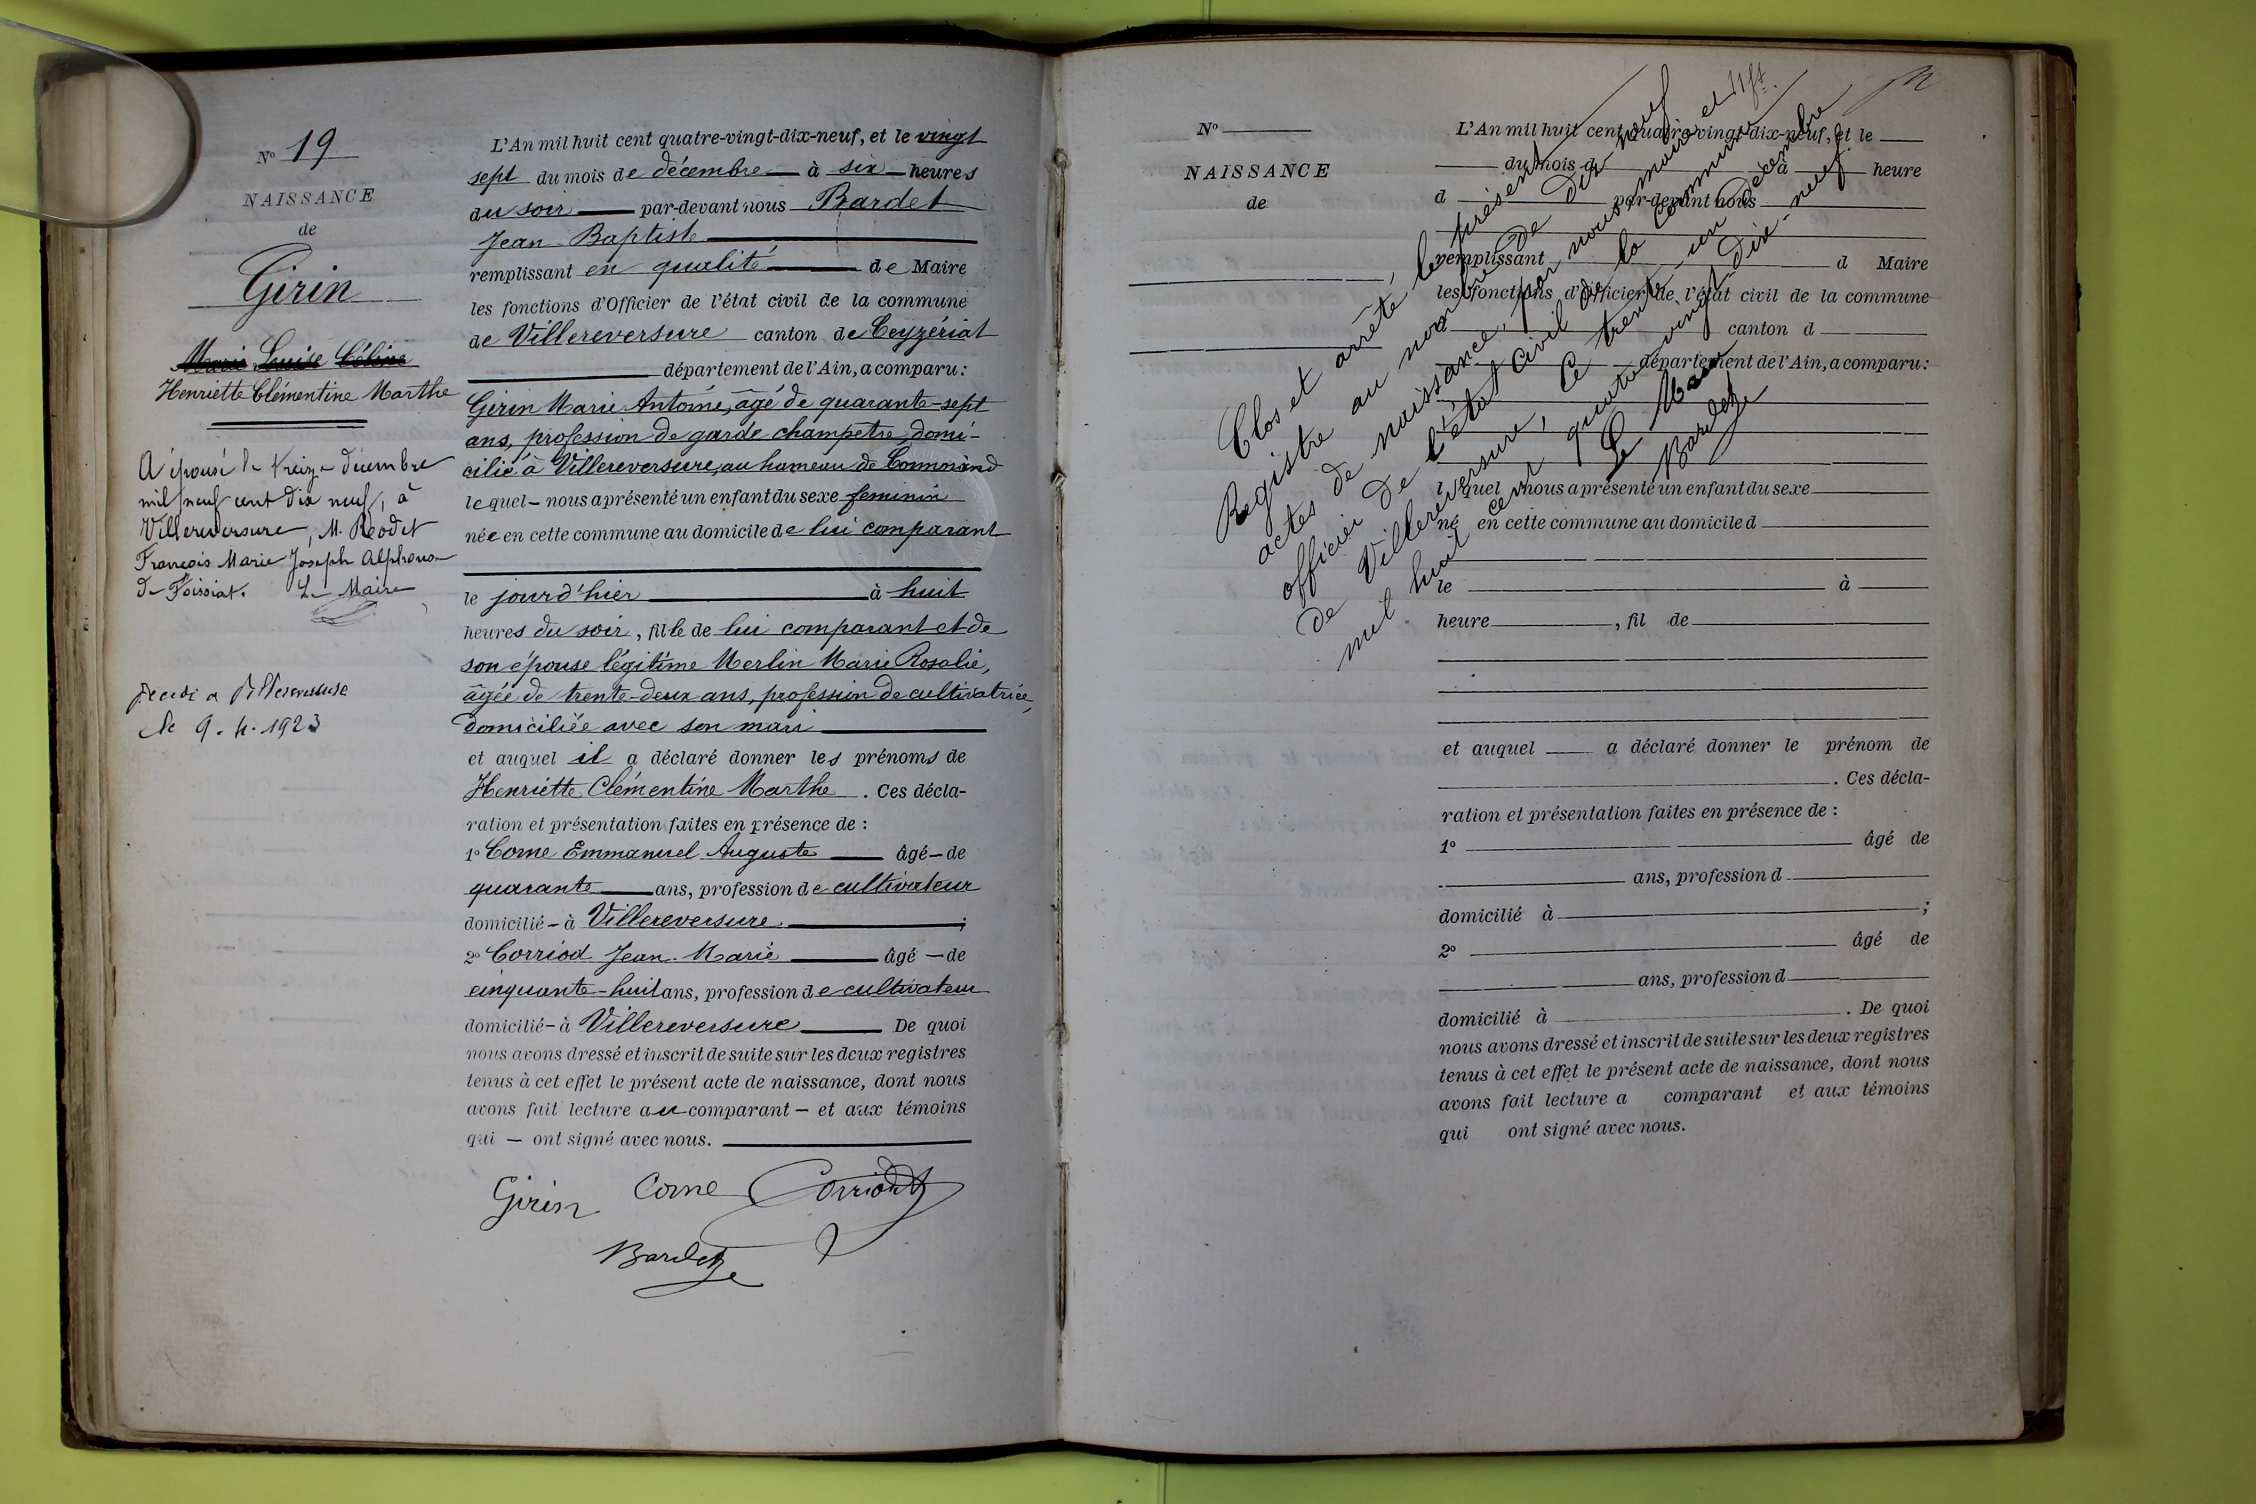 N° 19
NAISSANCE
de
Girin
Marie Louise Céline
Henriette Clémentine Marthe
A épousé le treize décembre
mil neuf cent dix neuf, à
Villereversure, M. Réodet
François Marie Joseph Alphonse
de Foissiat. Le Maire
à Villereversure
le 9.4.1923
L'An mil huit cent quatre-vingt-dix-neuf, et le vingt
sept du mois de décembre à six heures
du soir par-devant nous Bardet
Jean Baptiste
remplissant en qualité de Maire
les fonctions d'Officier de l'état civil de la commune
de Villereversure canton de Ceyzériat
département de l'Ain, a comparu :
Girin Marie Antoine, âgé de quarante-sept
ans, profession de garde champêtre, domi-
cilié à Villereversure, au hameau de
lequel – nous a présenté un enfant du sexe feminin
née en cette commune au domicile de lui comparant
le jourd'hier à huit
heures du soir, fille de lui comparant et de
son épouse légitime Merlin Marie Rosalie,
âgée de trente-deux ans, profession de cultivatrice,
domiciliée avec son mari
et auquel il a déclaré donner les prénoms de
Henriette Clémentine Marthe. Ces décla-
ration et présentation faites en présence de :
1° Corne Emmanuel Auguste âgé – de
quarante ans, profession de cultivateur
domicilié – à Villereversure ;
2° Corriod Jean-Marie âgé – de
cinquante-huit ans, profession de cultivateur
domicilié – à Villereversure De quoi
nous avons dressé et inscrit de suite sur les deux registres
tenus à cet effet le présent acte de naissance, dont nous
avons fait lecture au comparant – et aux témoins
qui – ont signé avec nous.
Girin Corne Corriod
Bardet
N°
NAISSANCE
de
L'An mil huit cent quatre-vingt-dix-neuf, et le
du mois d à heure
d par-devant nous
remplissant d Maire
les fonctions d'Officier de l'état civil de la commune
d canton d
département de l'Ain, a comparu :
l quel nous a présenté un enfant du sexe
né en cette commune au domicile d
le à
heure , fil de
et auquel a déclaré donner le prénom de
. Ces décla-
ration et présentation faites en présence de :
1° âgé de
ans, profession d
domicilié à ;
2° âgé de
ans, profession d
domicilié à . De quoi
nous avons dressé et inscrit de suite sur les deux registres
tenus à cet effet le présent acte de naissance, dont nous
avons fait lecture a comparant et aux témoins
qui ont signé avec nous.
Clos et arrêté le présent
Registre au nombre de dix neuf
actes de naissance, par nous, maire et
officier de l'état civil de la commune
de Villereversure, le trente-un décembre
mil huit cent quatre-vingt-dix-neuf.
Le Maire
Bardet